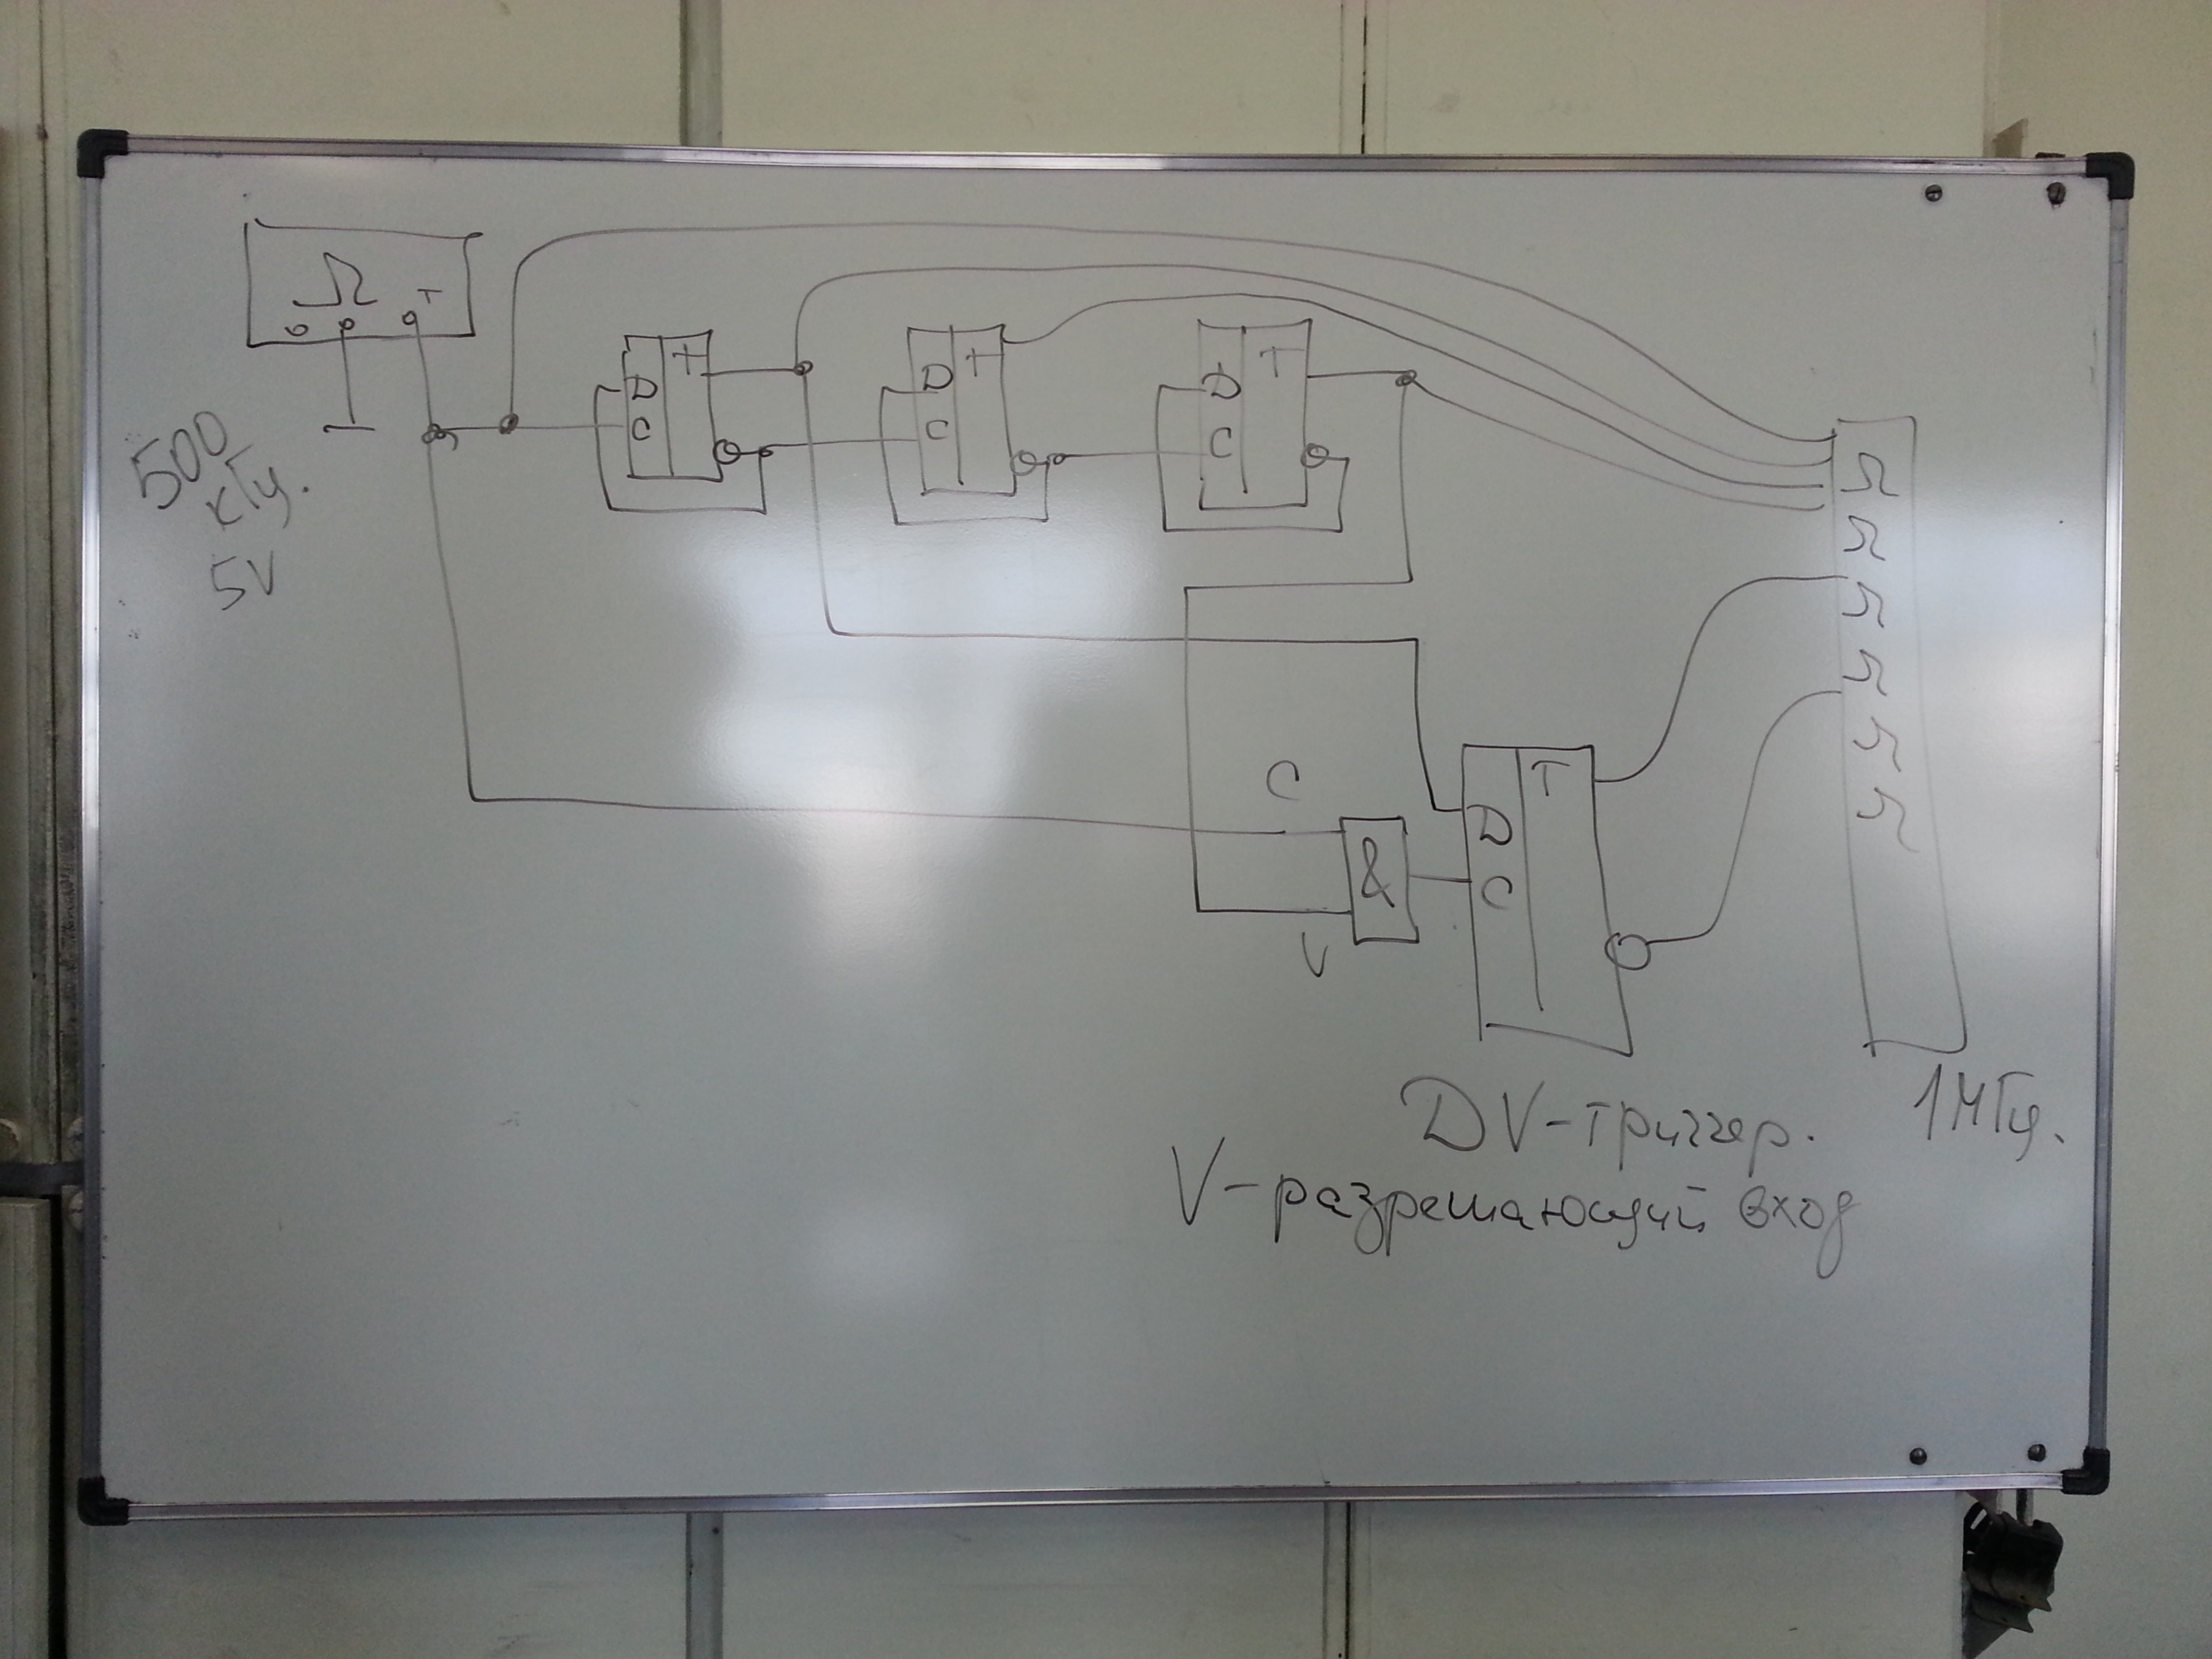 T
500
кГц.
5V
D T
C
D T
C
D T
C
C
&
V
D T
C
1МГц.
DV-триггер.
V-разрешающий вход